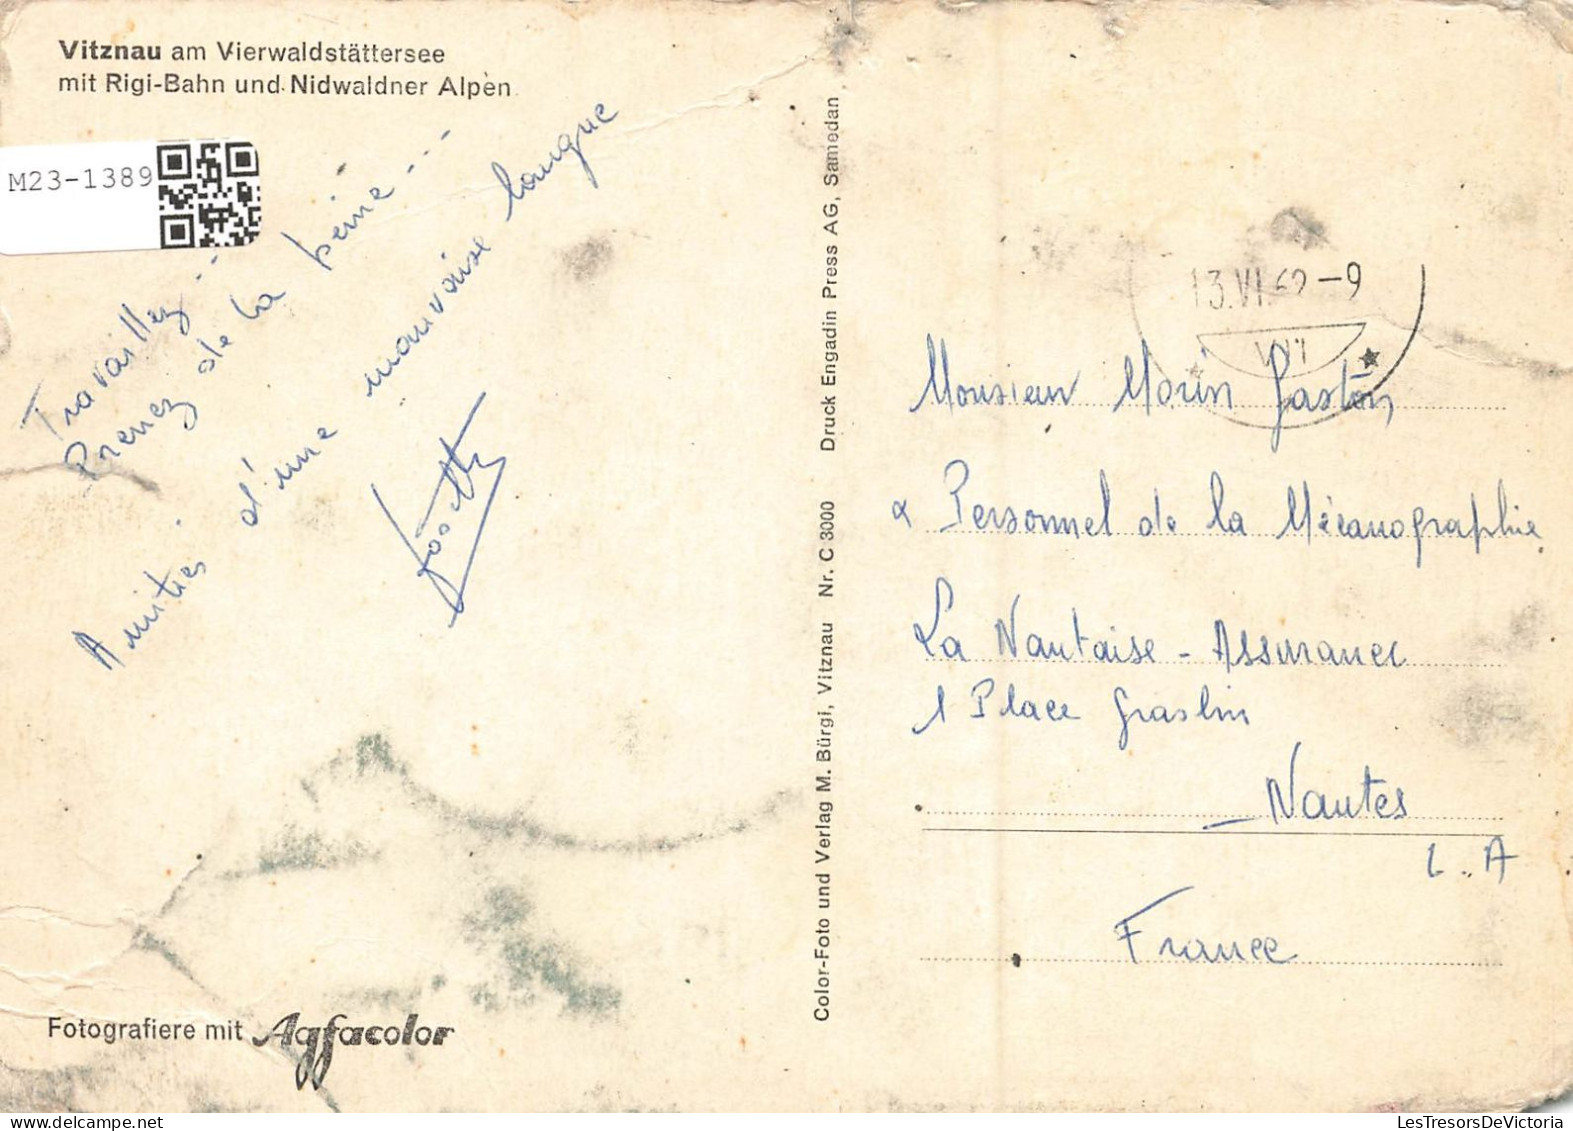 Vitznau am Vierwaldstättersee
mit Rigi-Bahn und Nidwaldner Alpen
M23-1389
Travaillez...
Prenez de la peine...
Amitiés d'une mauvaise langue
Josette
Fotografiere mit Agfacolor
Color-Foto und Verlag M. Bürgi, Vitznau Nr. C 3000 Druck Engadin Press AG, Samedan
13.VI.62-9
Monsieur Morin Gaston
& Personnel de la Mécanographie
La Nantaise - Assurances
1 Place Graslin
- Nantes
L. A
France
LesTresorsDeVictoria